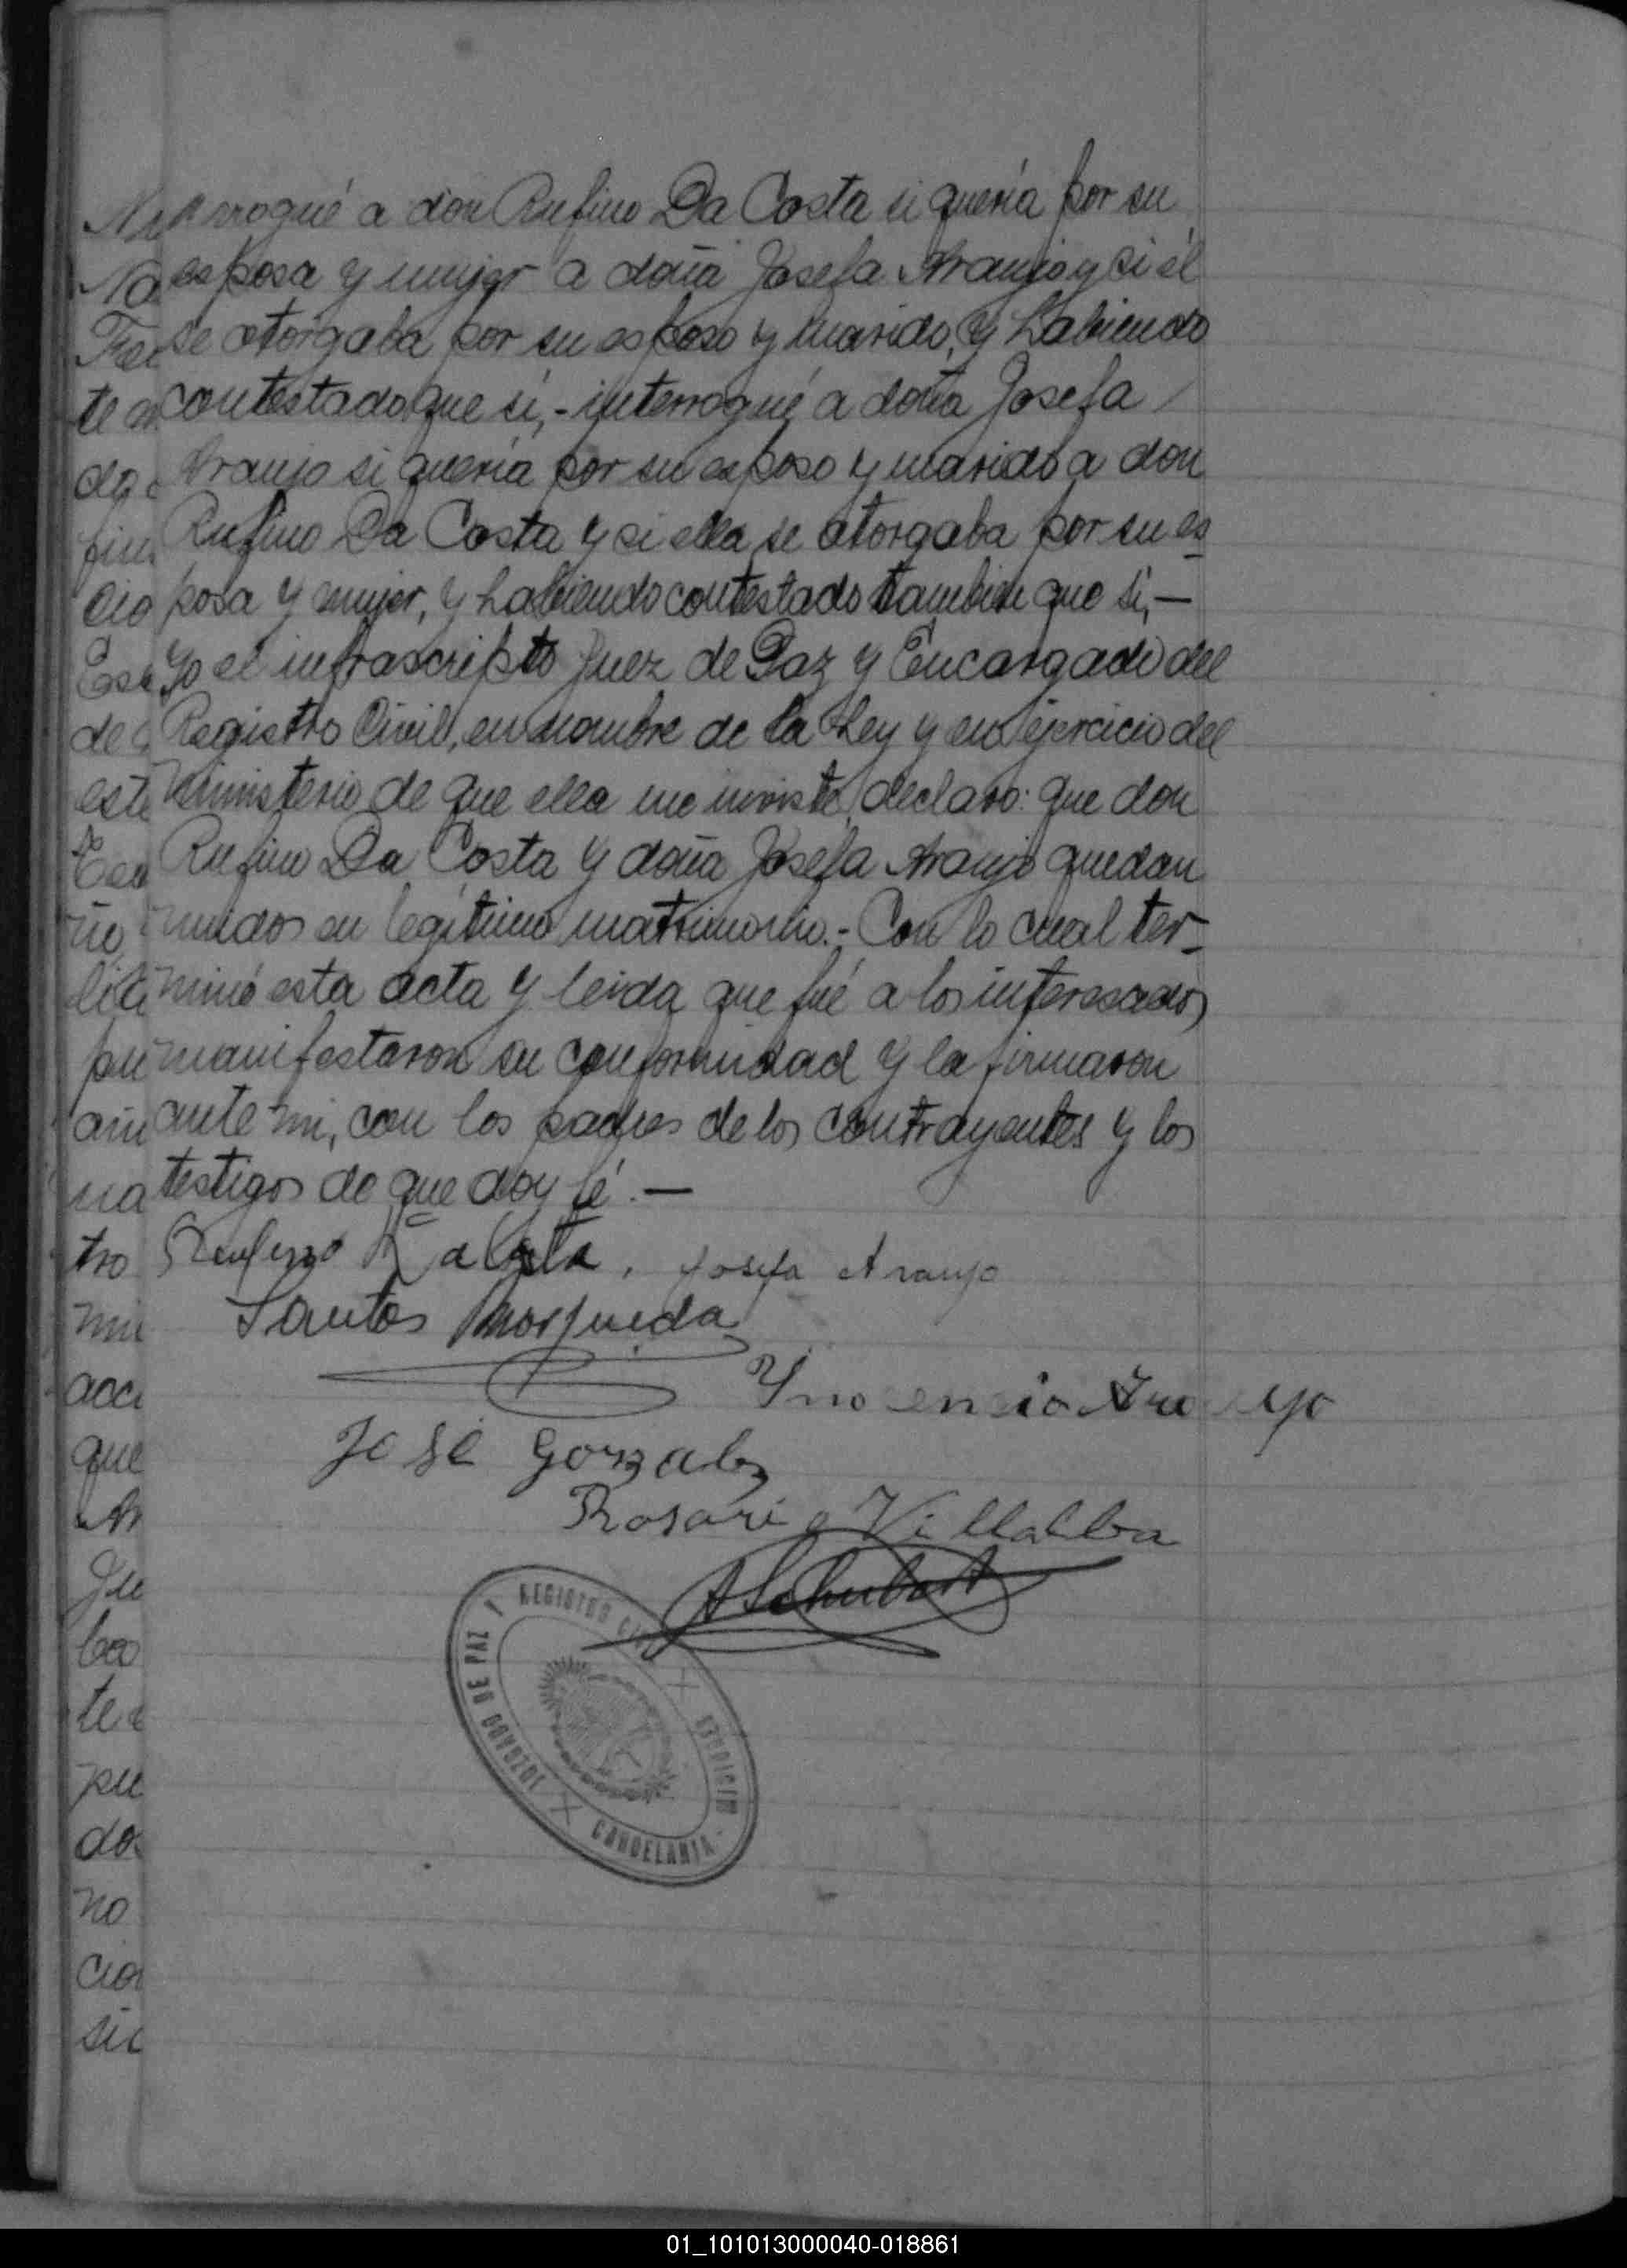 rrogué a don Rufino Da Costa si quería por su
esposa y mujer a doña Josefa Araujo y si él
se otorgaba por su esposo y marido, y habiendo
contestado que si, - interrogué a doña Josefa
Araujo si quería por su esposo y marido a don
Rufino Da Costa y si ella se otorgaba por su es
posa y mujer, y habiendo contestado tambien que si, —
Yo el infrascripto Juez de Paz y Encargado del
Registro Civil, en nombre de la Ley y en ejercicio del
ministerio de que ella me inviste, declaro: que don
Rufino Da Costa y doña Josefa Araujo quedan
unidos en legítimo matrimonio. - Con lo cual ter-
minó esta acta y leida que fué a los interesados
manifestaron su conformidad y la firmaron
ante mi, con los padres de los contrayentes y los
testigos de que doy fé. —
Rufino Da Costa, Josefa Araujo
Santos Morqueda
Ynocencio Araujo
José Gonzalez
Rosario Villalba
A Schubert
JUZGADO DE PAZ Y REGISTRO CIVIL
MISIONES
CANDELARIA
01_101013000040-018861